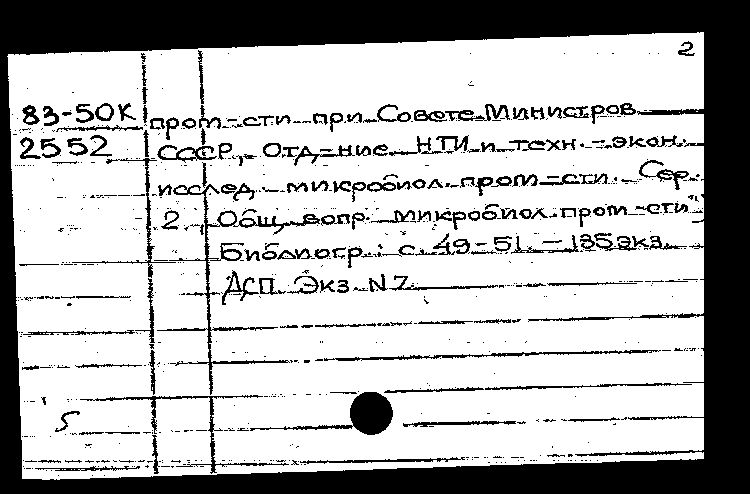 2
83-50К пром-сти при Совете Министров
2552 СССР, Отд-ние НТИ и техн.-экон.
исслед. микробиол. пром-сти. Сер.
2, Общ. вопр. микробиол. пром-сти").
Библиогр.: с. 49-51. - 135 экз.
ДСП Экз. N 7.
5